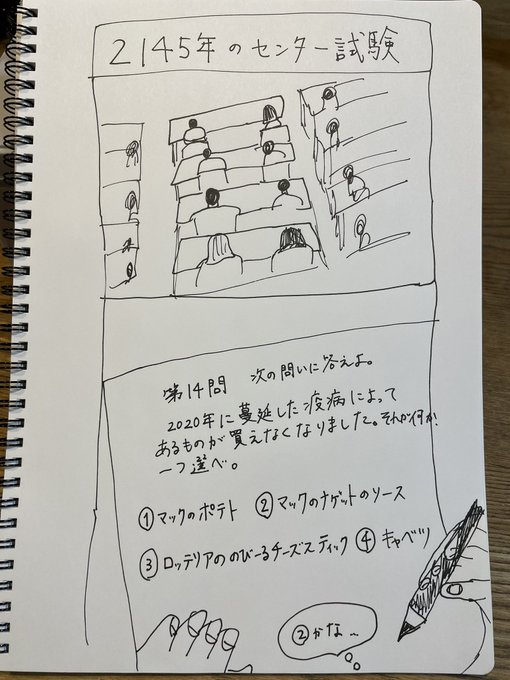 2145年のセンター試験
第14問 次の問いに答えよ。
2020年に蔓延した疫病によって
あるものが買えなくなりました。それが何か
一つ選べ。
①マックのポテト ②マックのナゲットのソース
③ロッテリアののびーるチーズスティック ④キャベツ
②かな〜